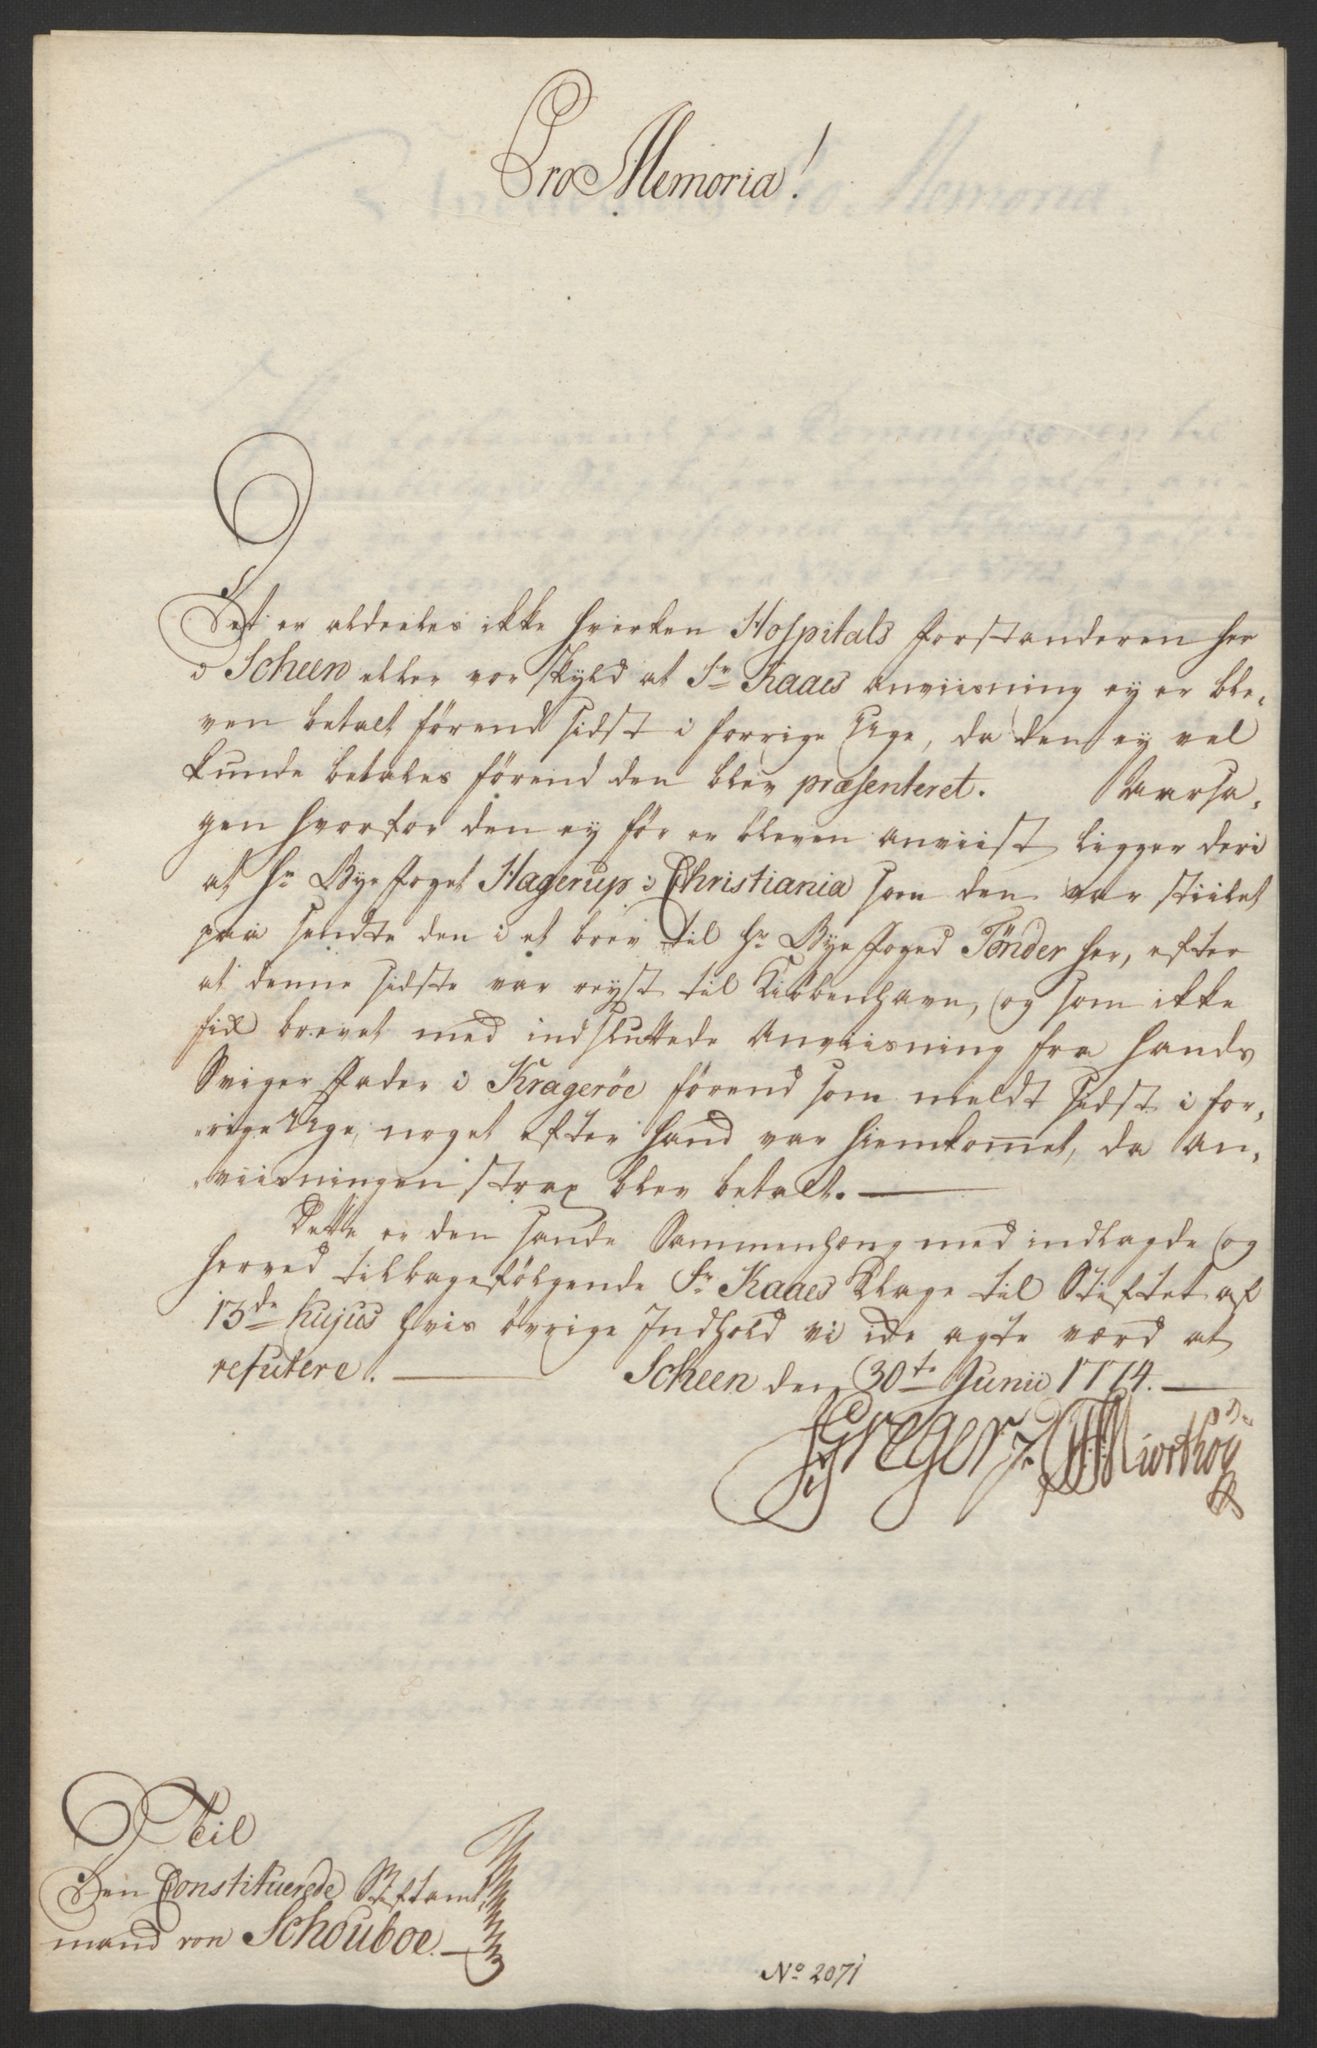 Pro Memoria!
Det er aldeeles ikke hverken Hospitals forstanderen her
i Scheen eller vor skyld at Sr Kaaes anviisning ey er ble,
ven betalt förend sidst i forrige Uge, da den ey vel
kunde betales förend den blev præsenteret. Aarsa,
gen hvorfor den ey för er bleven anviist, ligger deri
at Hr Bye foget Hagerup i Christiania som den var stiilet
paa sendte den i et brev til Hr Bye foged Tönder her, efter
at denne sidste var reyst til Kiöbenhavn, og som ikke
fik brevet med indsluttede Anviisning fra hands
Sviger fader i Krageröe förend som meldt sidst i for,
rige Uge, noget efter hand var hiemkomet, da An,
viisningen strax blev betalt.
Dette er den sande Sammenhæng med indlagde og
herved tilbagefölgende Sr Kaaes Klage til Stiftet af
13de hujus hvis övrige Indhold vi ide agte værd at
refutere. Scheen den 30te Junii 1774.
Gregers Jr
Til
Den Constituerede Stiftamt,
mand von Schouboe.
No 2071